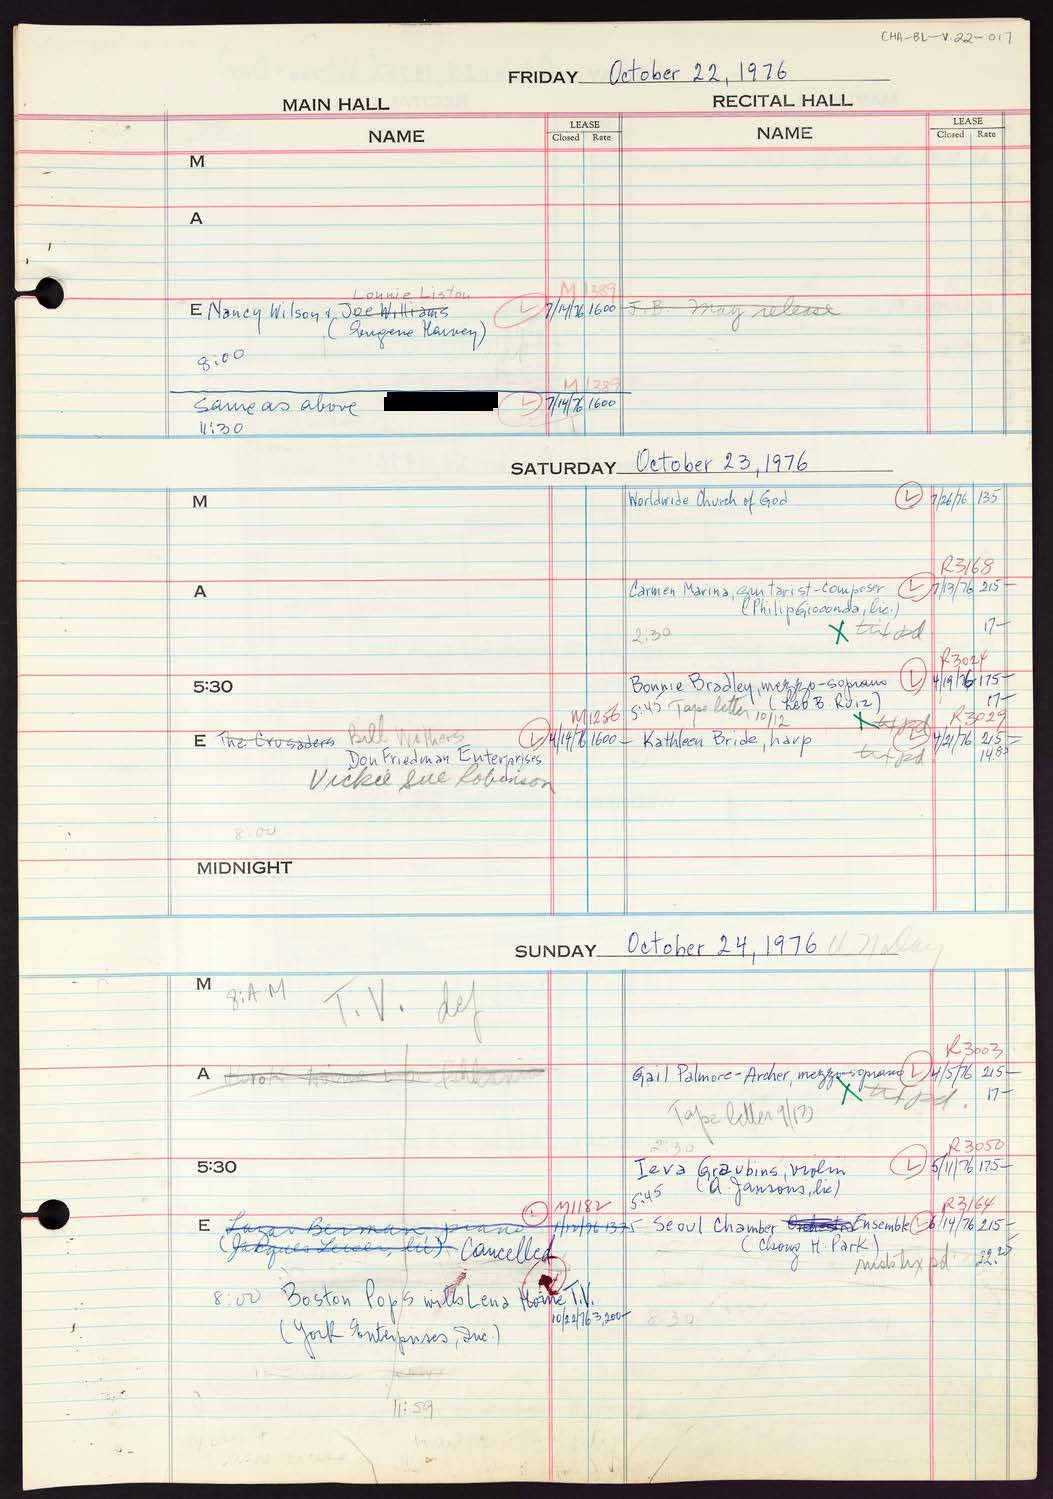 CHA-BL-V.22-017
FRIDAY October 22, 1976
MAIN HALL
RECITAL HALL
NAME
LEASE
Closed Rate
NAME
LEASE
Closed Rate
M
A
Lonnie Liston
M 1289
E Nancy Wilson & Joe Williams L 7/14/76 1600 J.B. May release
(Eugene Harvey)
8:00
M 1289
Same as above L 7/14/76 1600
11:30
SATURDAY October 23, 1976
M Worldwide Church of God L 7/26/76 135
R3168
A Carmen Marina, guitarist-composer L 7/13/76 215—
(Philip Gioconda, lic.)
2:30 X tix pd 17—
R3024
5:30 Bonnie Bradley, mezzo-soprano L 4/19/76 175—
5:45 Tape letter 10/12 (Leo B. Ruiz) 17—
X tix pd
M1256 R3029
E The Crusaders Bill Withers L 4/14/76 1600— Kathleen Bride, harp 4/21/76 215—
Don Friedman Enterprises tix pd
Vickie Sue Robinson
8:00
MIDNIGHT
SUNDAY October 24, 1976 U.N. Day
M 8:AM T.V. def
R3003
A Gail Palmore-Archer, mezzo-soprano L 4/5/76 215—
X tix pd. 17—
Tape letter 9/13
2:30
R3050
5:30 Ieva Graubins, violin L 5/11/76 175—
5:45 (A. Jansons, lic)
L M1182 R3164
E Lazar Berman piano 1375 Seoul Chamber Orchestra Ensemble L 6/14/76 215—
Cancelled (Chong H. Park)
pd
8:00 Boston Pops with Lena Horne T.V.
10/22/76 3,200—
8:30
(York Enterprises, Inc.)
11:59